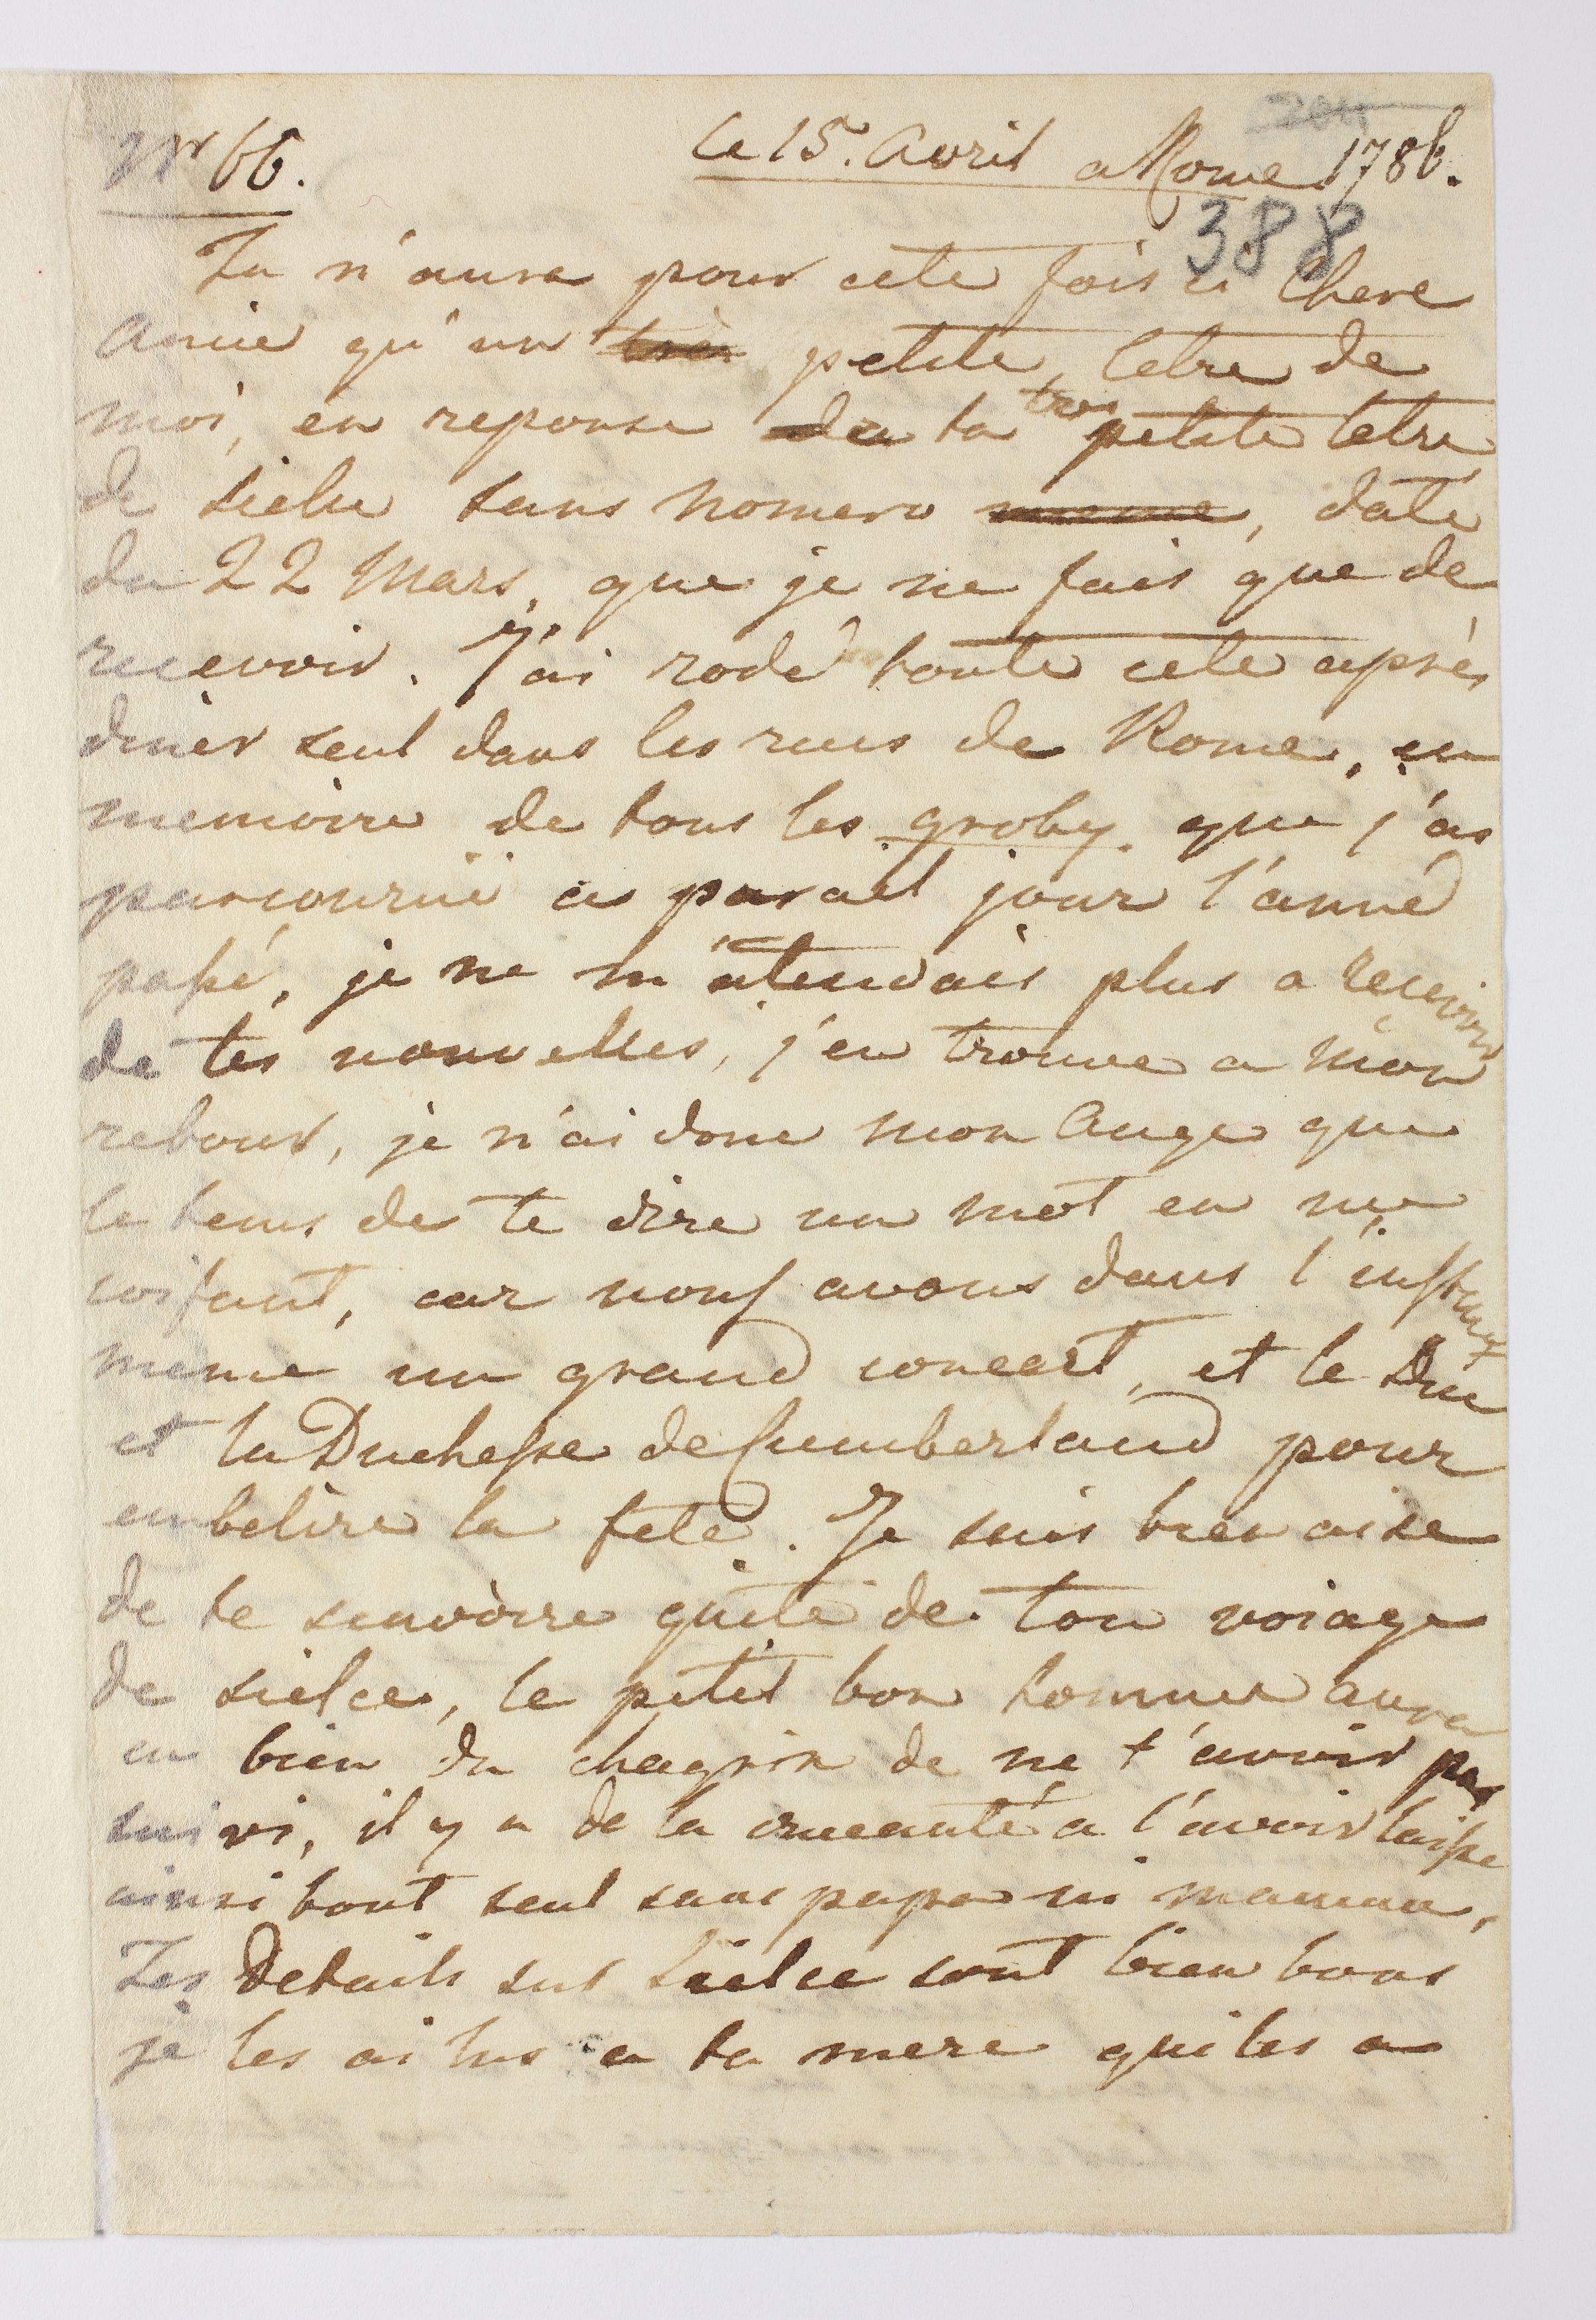 Nr 66.
Le 15. Avril a Rome 1786.
388
Tu n'aura pour cete fois ci Chere
Amie qu'un petite letre de
moi, en reponse a ta tres petite letre
de sielce sans Nomero meme, daté
du 22 Mars, que je ne fais que de
recevoir. J'ai rodé toute cete aprés
dinèr seul dans les rues de Rome, en
memoire de tous les groby que j'ai
parcouruë a parael jour l'anné
passé, je ne m'atendais plus a recevoir
de tes nouvelles, j'en trouve a mon
retour, je n'ai donc mon Ange que
le tems de te dire un mot en me
coifant, car nous avons dans l'instant
meme un grand concert, et le Duc
et la Duchesse de Cumberland pour
embelire la fete. Je suis bien aise
de te savoire quite de ton voiage
de sielce, le petit bon homme aura
eu bien du chagrin de ne t'avoir pas
suivi, il y a de la cruauté a l'avoir laisse
ainsi tout seul sans papa ni maman,
Tes Details sur Sielce sont bien bons
je les ai lus a ta mere qui les a